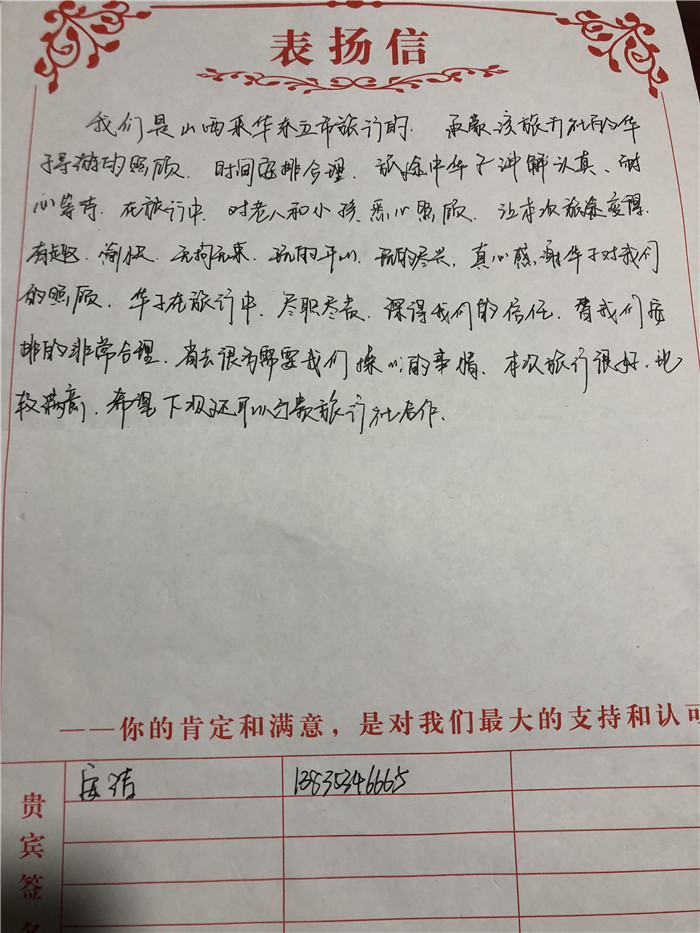 表扬信
我们是山西来华东五市旅行的. 承蒙该旅行社的华
子导游的照顾. 时间安排合理. 旅途中华子讲解认真、耐
心等待. 在旅行中. 对老人和小孩.悉心照顾. 让本次旅途变得.
有趣. 愉快. 无拘无束. 玩的开心. 玩的尽兴. 真心感谢华子对我们
的照顾. 华子在旅行中. 尽职尽责. 深得我们的信任. 替我们安
排的非常合理. 省去很多需要我们操心的事情. 本次旅行很好.比
较满意. 希望下次还可以与贵旅行社合作.
——你的肯定和满意，是对我们最大的支持和认可
贵宾签名
13835346665